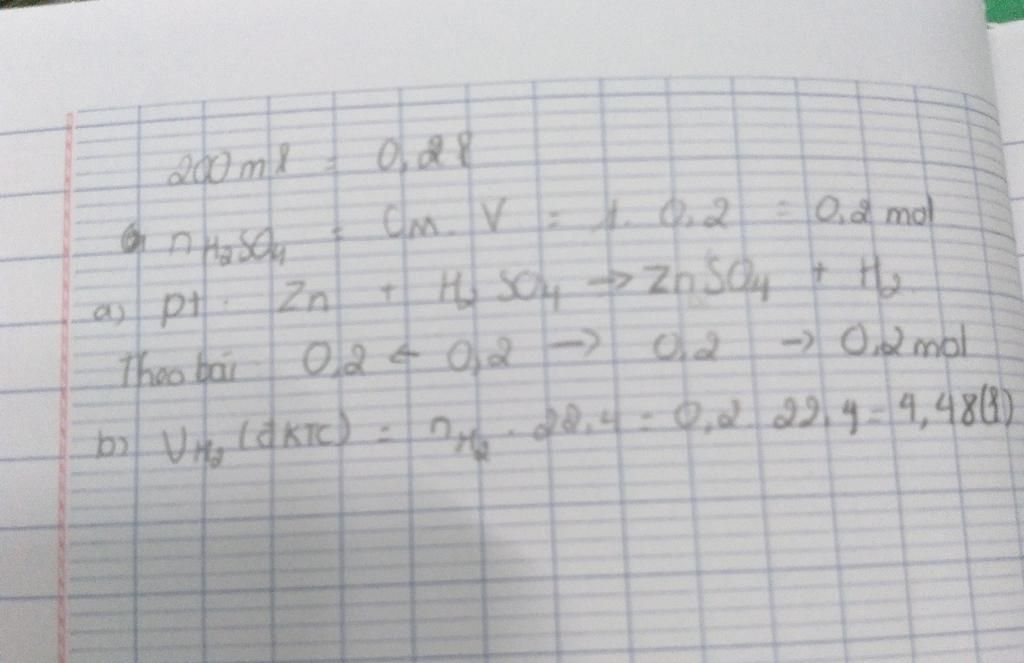 200 ml = 0,2 l
n H₂SO₄ = CM. V = 1. 0,2 = 0,2 mol
a) pt: Zn + H₂SO₄ → ZnSO₄ + H₂
Theo bài 0,2 ← 0,2 → 0,2 → 0,2 mol
b) VH₂ (đKTC) = nH₂ . 22,4 = 0,2. 22,4 = 4,48(l)